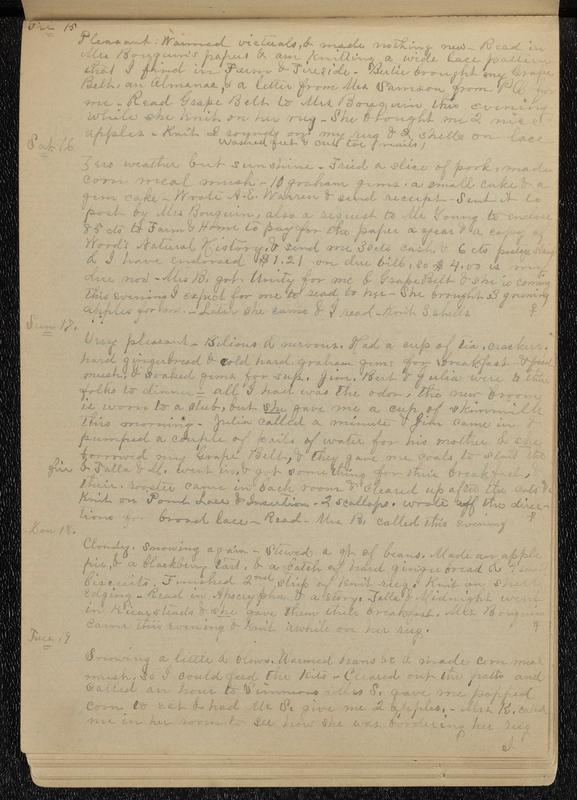 Fri 15
Pleasant. Warmed victuals, & made nothing new – Read in
Mrs Bouquin's papers & am knitting a wide lace pattern
that I find in Farm & Fireside – Bertie brought my Grape
Belt, an Almanac, & a letter from Mrs Samson from P.O. for
me – Read Grape Belt to Mrs Bouquin this evening
while she knit on her rug – She brought me 2 nice
apples – Knit 2 rounds on my rug & 2 shells on lace
Washed feet & cut toe nails,
Sat 16
Zero weather but sunshine – Fried a slice of pork, made
corn meal mush – 10 graham gems, a small cake & a
gem cake – Wrote A. E. Warren & send receipt – Sent it to
post by Mrs Bouquin, also a request to Mr Young to enclose
85 cts to Farm & Home to pay for the paper a year & a copy of
Wood's Natural History, & send me 30 cts cash, & 6 cts postage
& I have endorsed $1.21 on due bill, so $4.00 is
due now – Mrs B. got Unity for me & Grape Belt & she is coming
this evening I expect for me to read to her – She brought 3 greening
apples for me. – Later she came & I read – Knit 3 shells
Sun 17.
Very pleasant – Bilious & nervous. Had a cup of tea, crackers,
hard gingerbread & cold hard graham gems for breakfast & fried
mush, & soaked gems for sup. Jim, Bert & Julia were to the
folks to dinner – all I had was the odor, the new broom
is worn to a stub, but she gave me a cup of skimmilk
this morning – Julia called a minute & Jim came in
pumped a couple of pails of water for his mother & she
borrowed my Grape Belt, & they gave me coals to start the
fire & Talla & M. went in & got something for their breakfast,
their rooster came in back room & I cleared up after the cats &
Knit on Point Lace & Insertion – 2 scallops, wrote off the direc-
tions for broad lace – Read – Mrs B. called this evening
Mon 18.
Cloudy. Snowing again – Stewed a qt of beans. Made an apple
pie, & a blackberry tart, & a batch of hard gingerbread &
biscuits. Finished 2nd strip of knit rug. Knit on shell
edging – Read in Apocrypha & a story. Talla & Midnight went
in & she gave them their breakfast. Mrs Bouquin
came this evening & knit awhile on her rug.
Tues 19
Snowing a little & blows. Warmed beans &c & made corn meal
mush, so I could feed the Kits – Cleared out the path and
called an hour to Simmons. Mrs S. gave me popped
corn to eat & had Mr S. give me 2 apples. – Mrs K. called
me in her room to see how she was bordering her rug